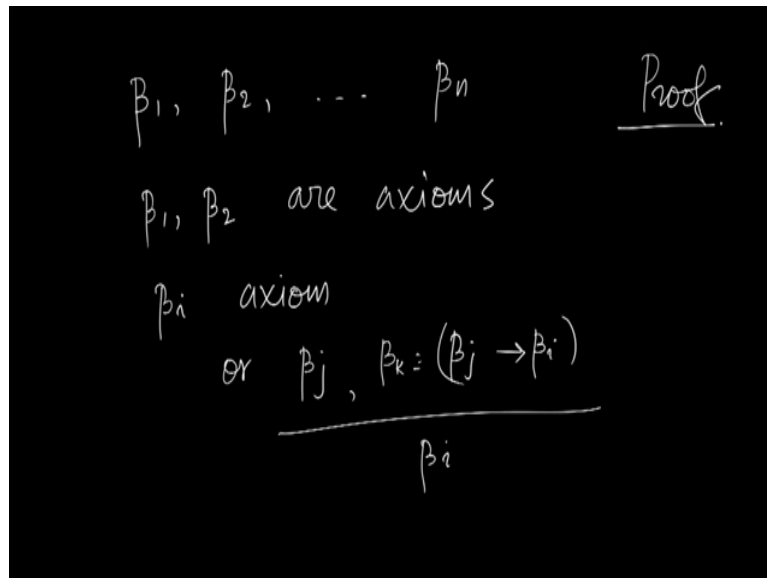 β₁, β₂, ... βn Proof.
β₁, β₂ are axioms
βi axiom
or βj, βk = (βj → βi)
βi